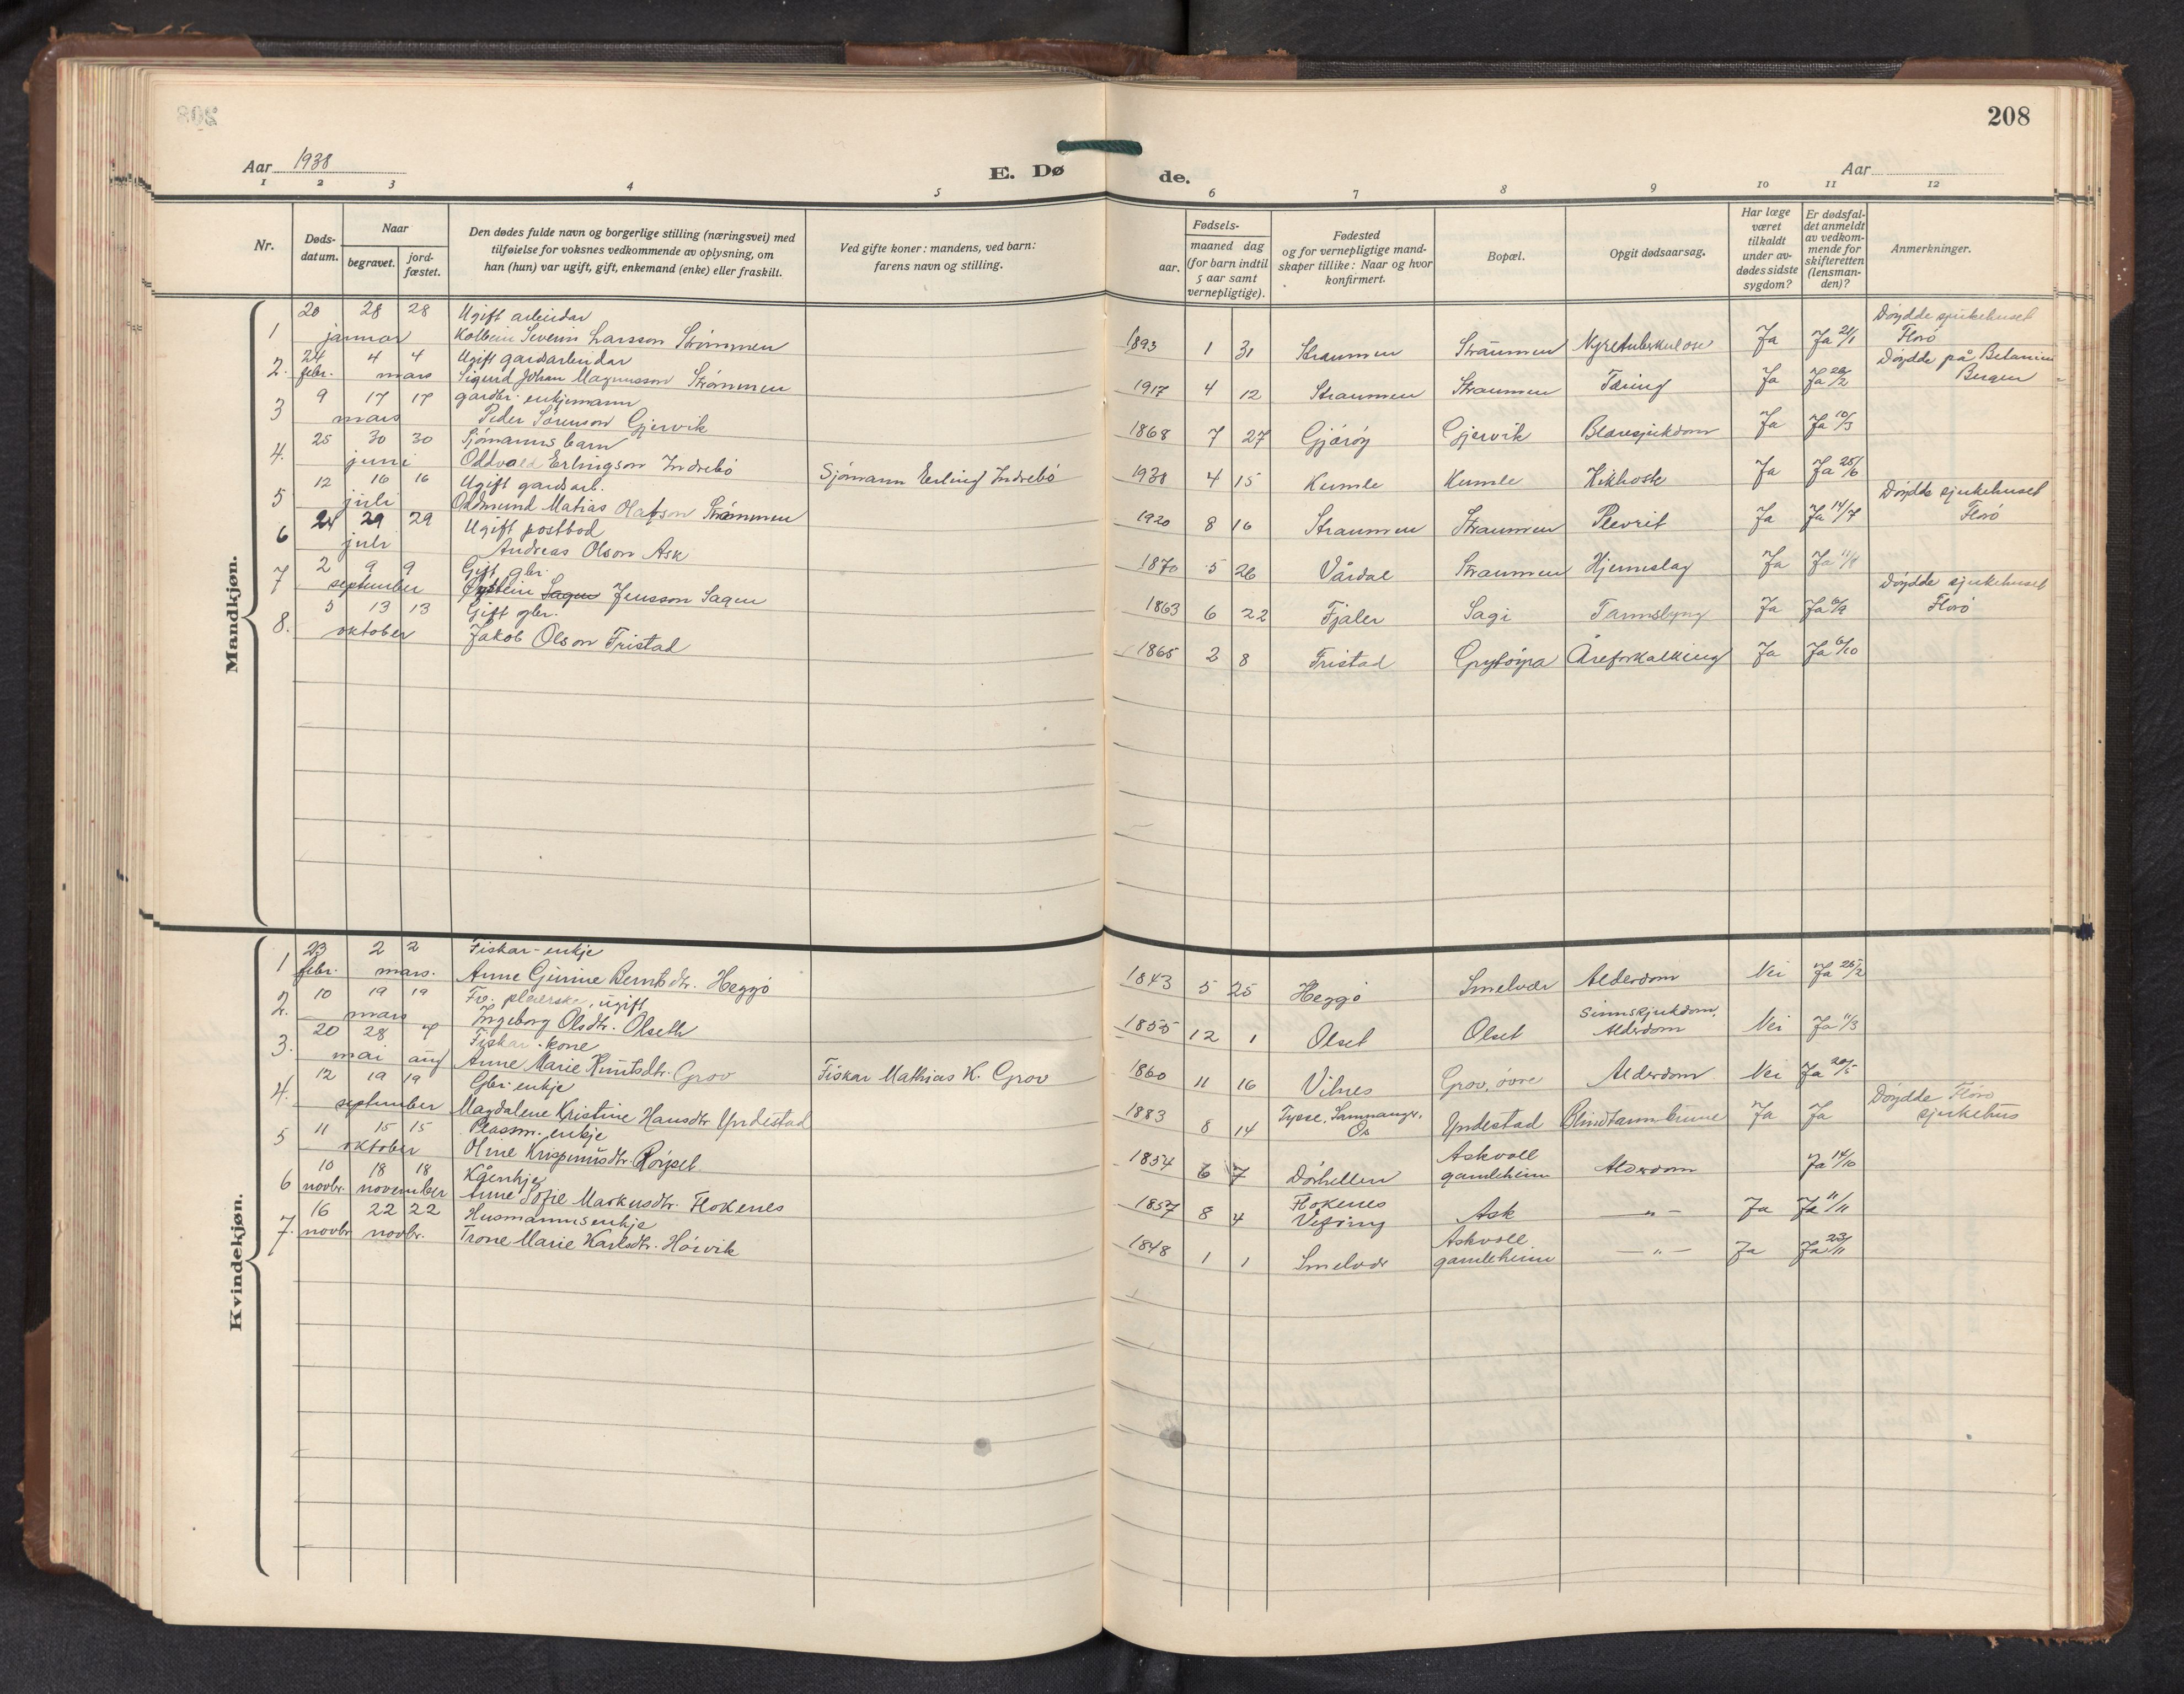 208
Aar 1938
E. Dø
de.
Aar
1 2 3 4 5 6 7 8 9 10 11 12
Nr.
Døds-datum.
Naar
begravet.
jord-fæstet.
Den dødes fulde navn og borgerlige stilling (næringsvei) med
tilføielse for voksnes vedkommende av oplysning, om
han (hun) var ugift, gift, enkemand (enke) eller fraskilt.
Ved gifte koner: mandens, ved barn:
farens navn og stilling.
Fødsels-
aar.
maaned dag
(for barn indtil
5 aar samt
vernepligtige).
Fødested
og for vernepligtige mand-
skaper tillike: Naar og hvor
konfirmert.
Bopæl.
Opgit dødsaarsag.
Har læge
været
tilkaldt
under av-
dødes sidste
sygdom?
Er dødsfal-
det anmeldt
av vedkom-
mende for
skifteretten
(lensman-
den)?
Anmerkninger.
Mandkjøn.
20 28 28 Ugift arbeidar Døydde sjukehuset
1 januar Kolbein Severin Larsson Strømmen 1893 1 31 Straumen Straumen Nyretuberkulose Ja Ja 21/1 Florö
24 4 4 Ugift gardsarbeidar Døydde på Betanien
2. febr. mars Sigurd Johan Magnusson Strømmen 1917 4 12 Straumen Straumen Tæring Ja Ja 26/2 Bergen
9 17 17 gardbr. enkjemann
3 mars Peder Sørenson Gjervik 1868 7 27 Gjørøy Gjervik Blæresjukdom Ja Ja 10/3
25 30 30 Sjømanns barn
4. juni Oddvald Erlingson Indrebö Sjømann Erling Indrebö 1938 4 15 Kumle Kumle Kikhoste Ja Ja 25/6
12 16 16 Ugift gardsarb. Døydde sjukehuset
5 juli Oddmund Matias Olafson Strømmen 1920 8 16 Straumen Straumen Plevrit Ja Ja 14/7 Florö
24 29 29 Ugift postbod
6 juli Andreas Olson Ask 1870 5 26 Vårdal Straumen Hjerneslag Ja Ja
2 9 9 Gift gbr. Døydde sjukehuset
7 september Øystein Sagen Jensson Sagen 1863 6 22 Fjaler Sagi Tarmslyng Ja Ja 6/9 Florö
5 13 13 Gift gbr.
8. oktober Jakob Olson Fristad 1865 2 8 Fristad Grytøyra Åreforkalking Ja Ja 6/10
Kvindekjøn.
23 2 2 Fiskar-enkje
1 febr. mars. Anne Gurine Berntsdtr. Heggö 1843 5 25 Heggö Smelvær Alderdom Nei Ja 25/2
10 19 19 Fv. pleierske, ugift Sinnssjukdom,
2. mars Ingeborg Olsdtr. Olseth 1855 12 1 Olset Olset Alderdom Nei Ja 11/3
20 28 7 Fiskar-kone
3. mai aug Anne Marie Knutsdtr. Grov Fiskar Mathias K. Grov 1860 11 16 Vilnes Grov, øvre Alderdom Nei Ja 20/5
12 19 19 Gbr. enkje Tysse, Samnanger, Døydde Florö
4. september Magdalene Kristine Hansdtr. Yndestad 1883 8 14 Os Yndestad Blindtarmbrune Ja Ja sjukehus
11 15 15 Plassm. enkje Askvoll
5 oktober Oline Krispinusdtr. Röyset 1854 6 7 Dörhellen gamleheim Alderdom Ja 14/10
10 18 18 Kårenkje Flokenes
6 novbr. november Anne Sofie Markusdtr. Flokenes 1857 8 4 Vefring Ask — „ — Ja Ja 11/11
16 22 22 Husmannsenkje Askvoll
7. novbr novbr. Trone Marie Karlsdtr. Hörvik 1848 1 1 Smelvær gamleheim — „ — Ja Ja 23/11